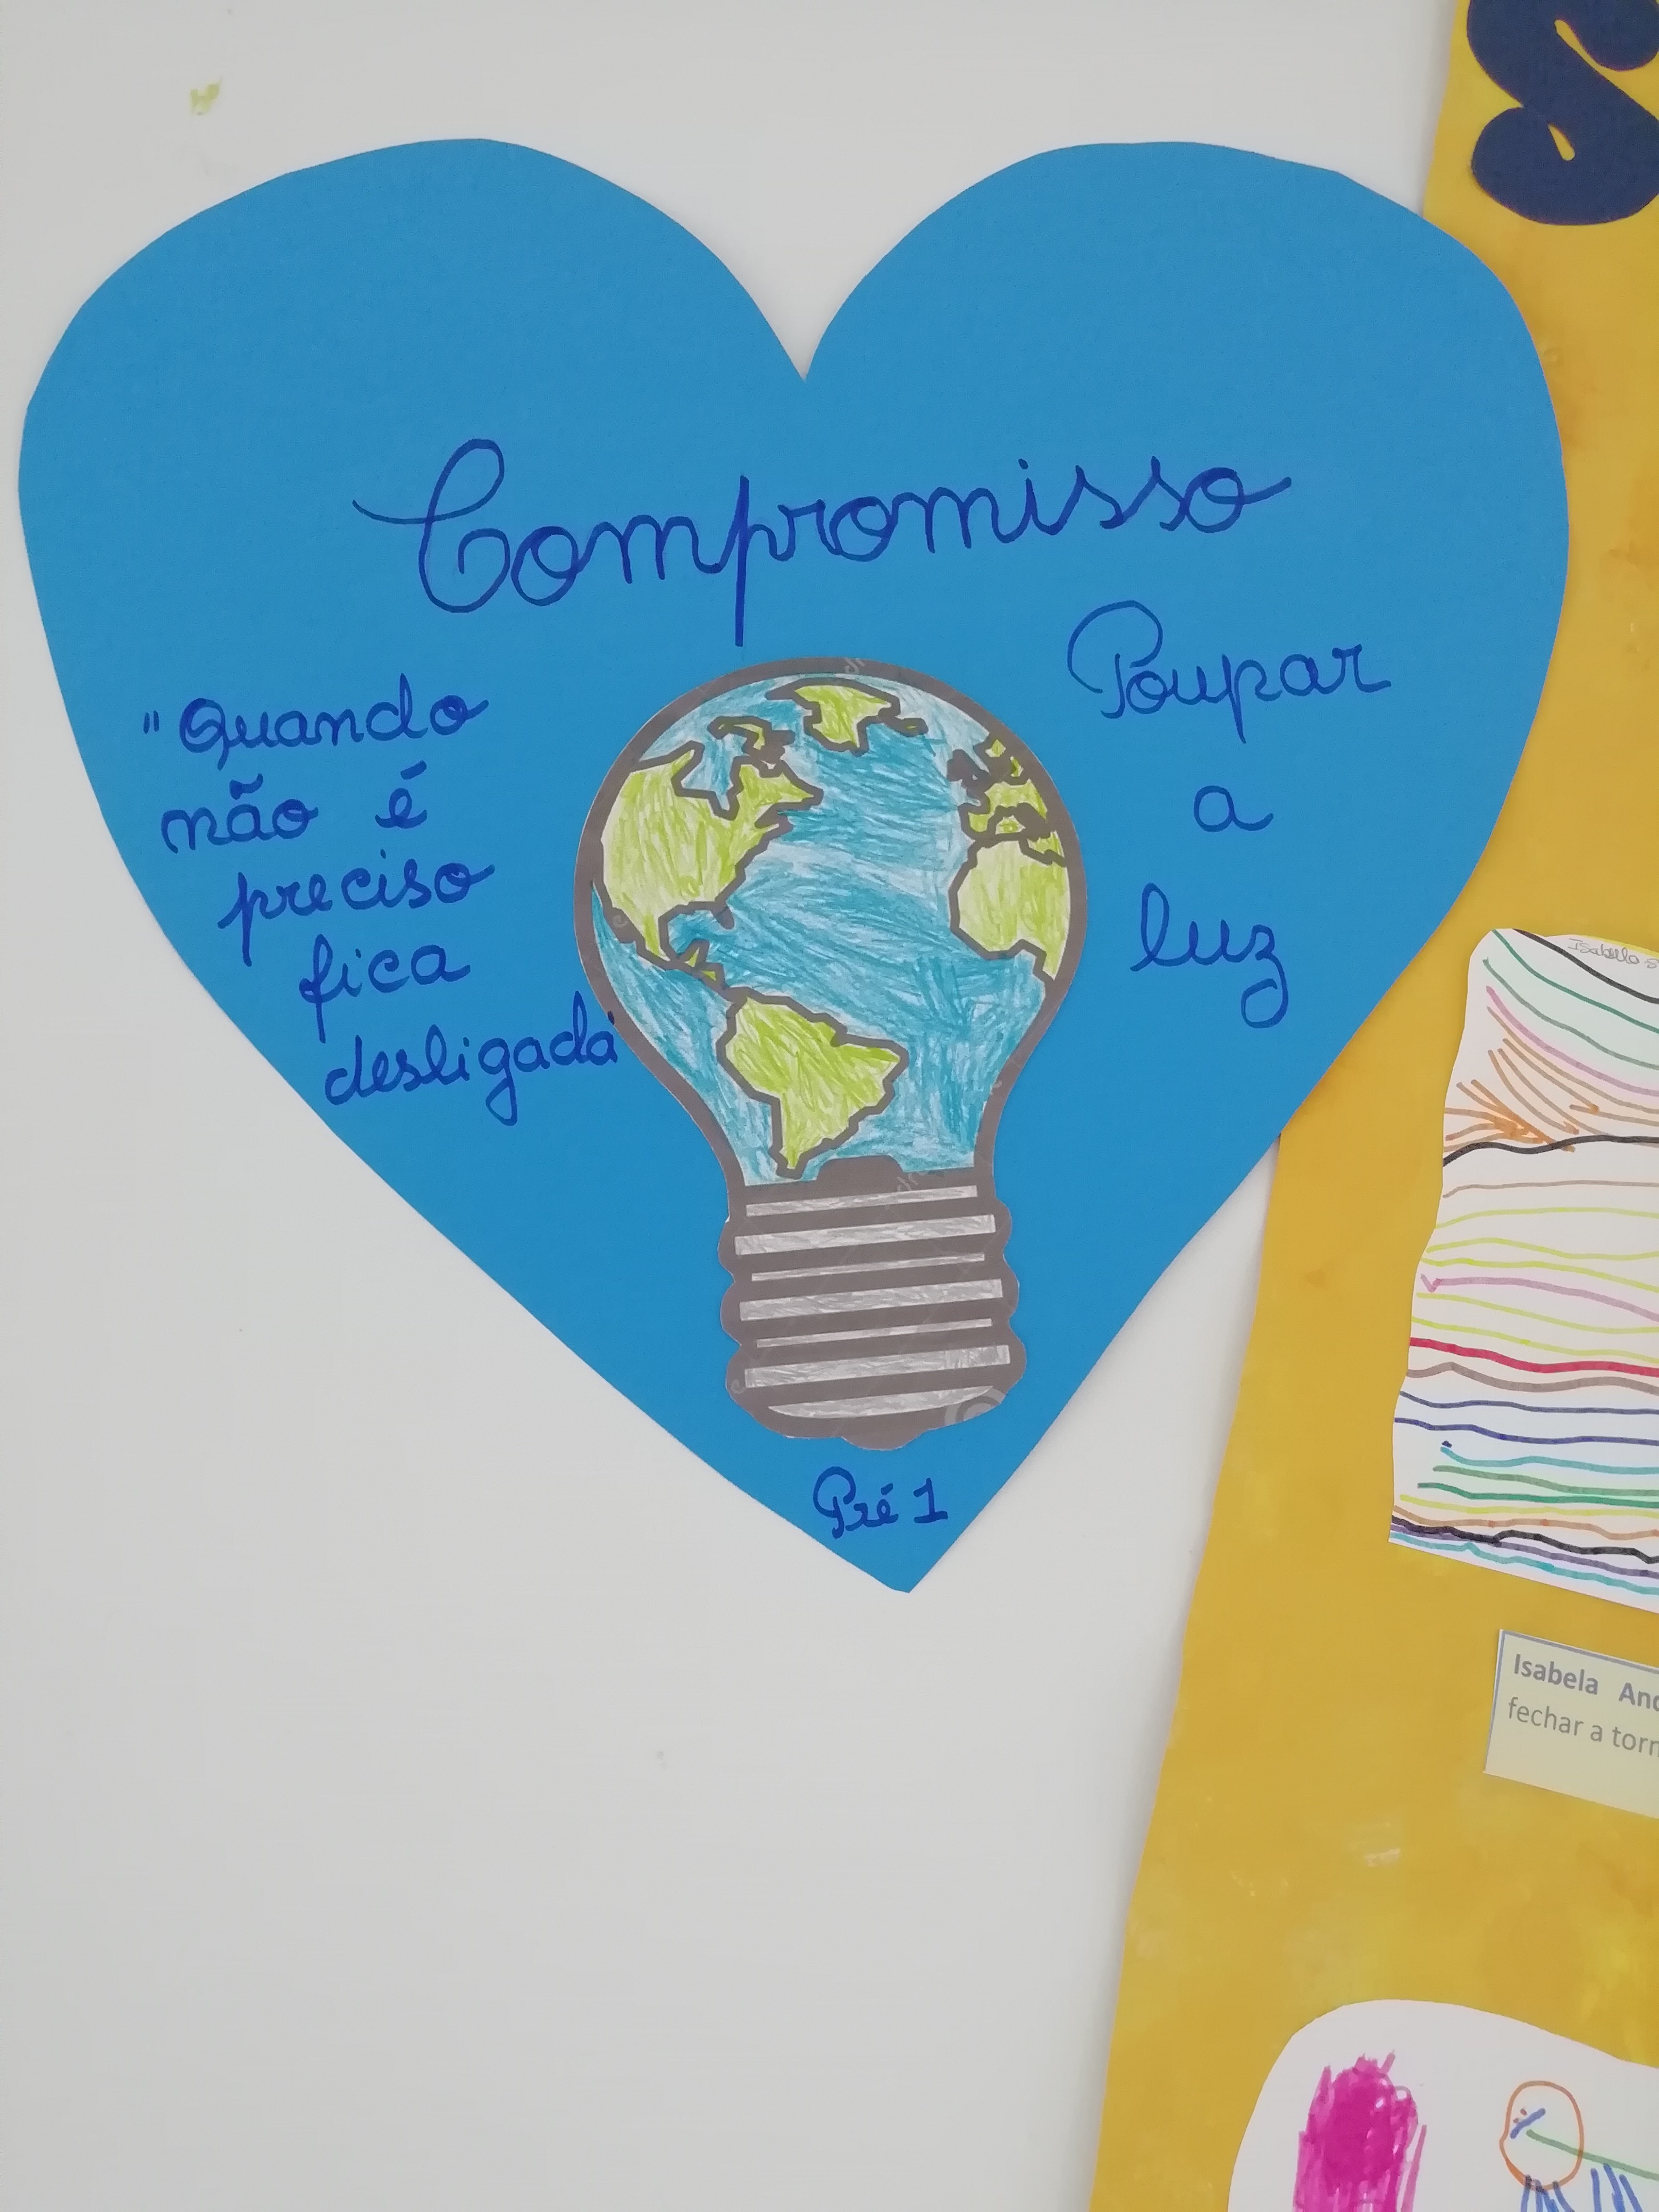 Compromisso
"Quando
não é
preciso
fica
desligada"
Poupar
a
luz
Pré 1
S
Isabela
fechar a